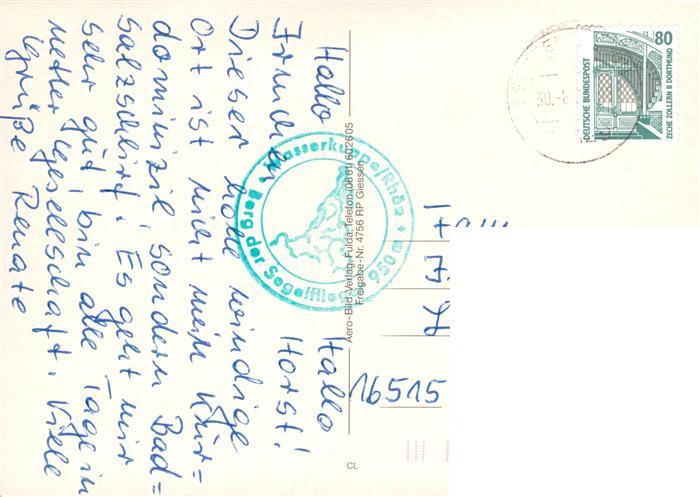 Hallo Hallo
Irmchen Horst!
Dieser hohe windige
Ort ist nicht mein Kur=
domizil sondern Bad=
salzschlirf. Es geht mir
sehr gut, bin alle Tage in
netter Gesellschaft. Viele
Grüße Renate
Wasserkuppe/Rhön • 950 m
• Berg der Segelflieger
Aero-Bild-Verlag, Fulda, Telefon (0661) 602605
Freigabe-Nr. 4756 RP Giessen
CL
80
DEUTSCHE BUNDESPOST
ZECHE ZOLLERN II DORTMUND
16515